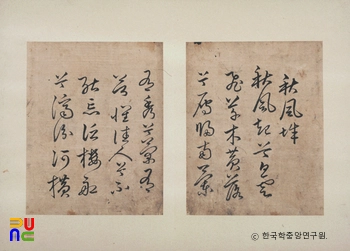 秋風辭
秋風起兮白雲
飛草木黃落
兮雁歸南蘭
有秀兮菊有
芳懷佳人兮不
能忘泛樓船
兮濟汾河橫
ⓒ 한국학중앙연구원.